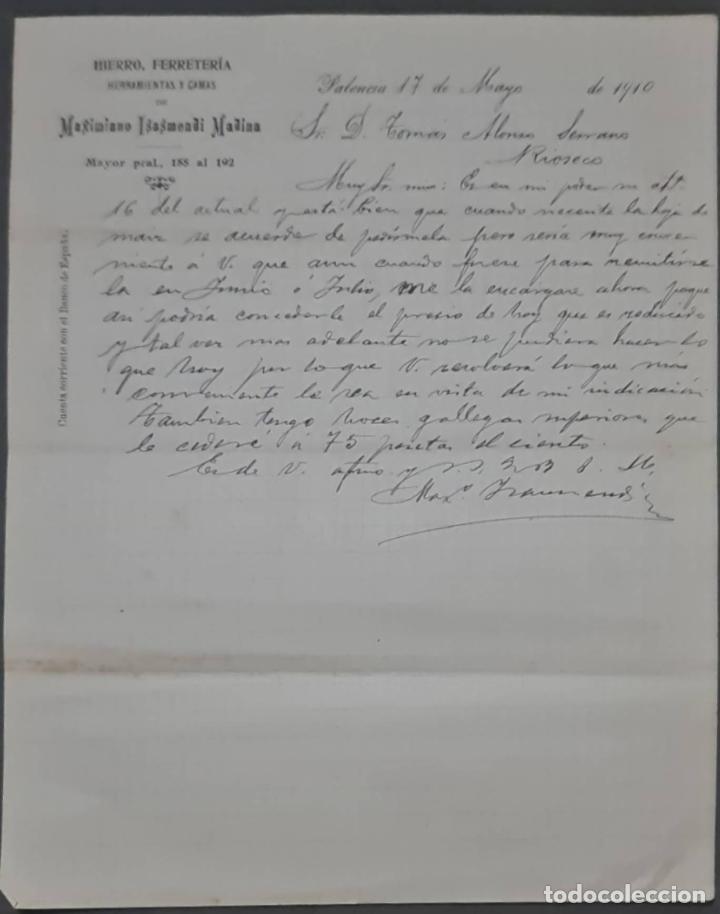 HIERRO, FERRETERÍA
HERRAMIENTAS Y CAMAS
DE
Maximiano Isasmendi Madina
Mayor pral., 188 al 192
Cuenta corriente con el Banco de España.
Palencia 17 de Mayo de 1910
Sr. D. Tomás Alonso Serrano
Rioseco
Muy Sr. mio: Es en mi poder su aft.
16 del actual y está bien que cuando necesite la hoja de
maiz se acuerde de pedírmela pero sería muy conve
niente á V. que aun cuando fuese para remitirse
la en Junio ó Julio, me la encargara ahora porque
asi podría concederle el precio de hoy que es reducido
y tal vez mas adelante no se pudiera hacer lo
que hoy por lo que V. resolverá lo que más
conveniente le sea en vista de mi indicación
Tambien tengo hoces gallegas superiores que
le cederé á 75 pesetas el ciento.
Es de V. afmo y s. s.
Max.º Isasmendi
todocoleccion
todocoleccion.net